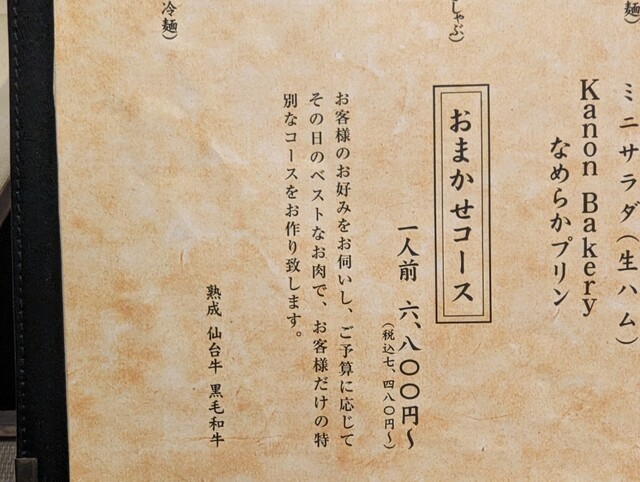 麺）
ミニサラダ（生ハム）
Kanon Bakery
なめらかプリン
しゃぶ）
おまかせコース
一人前　六、八〇〇円〜
（税込七、四八〇円〜）
お客様のお好みをお伺いし、ご予算に応じて
その日のベストなお肉で、お客様だけの特
別なコースをお作り致します。
熟成 仙台牛 黒毛和牛
冷麺）